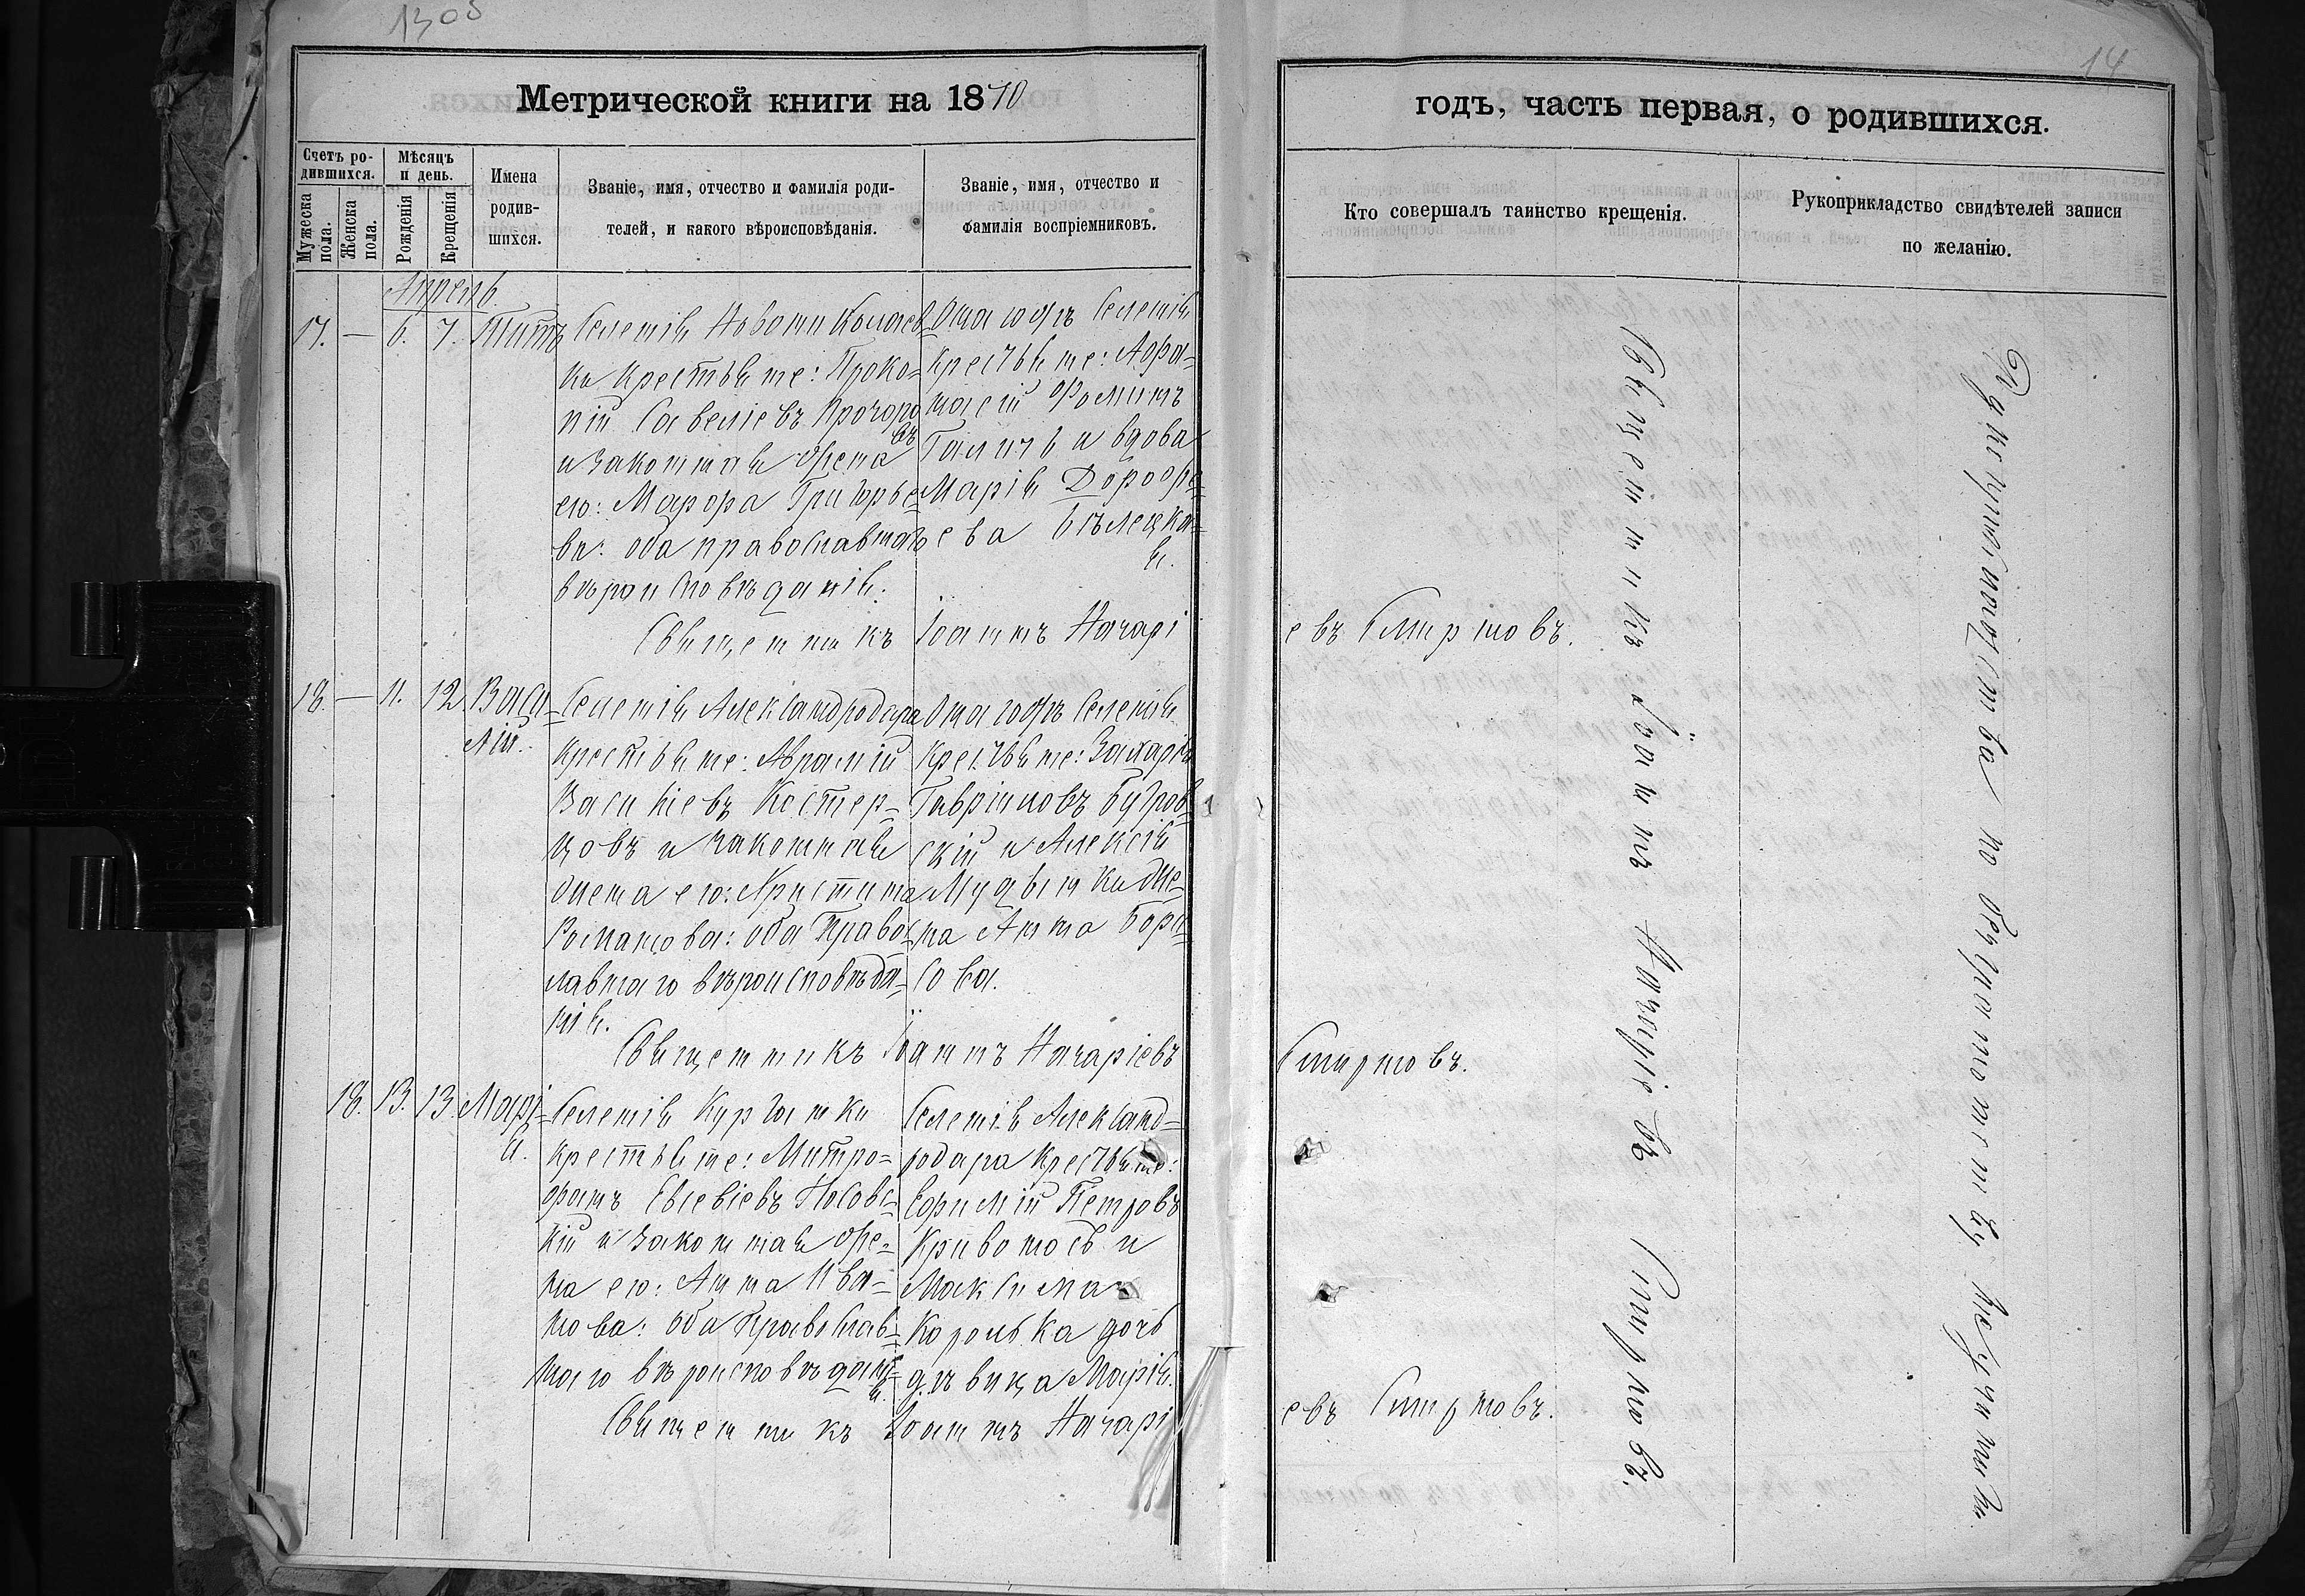 1303
14
Метрической книги на 1870
годъ, часть первая, о родившихся.
Счетъ ро-
дившихся.
Мужеска пола.
Женска пола.
Мѣсяцъ
и день.
Рожденія
Крещенія
Имена
родив-
шихся.
Званіе, имя, отчество и фамилія роди-
телей, и какого вѣроисповѣданія.
Званіе, имя, отчество и
фамилія воспріемниковъ.
Кто совершалъ таинство крещенія.
Рукоприкладство свидѣтелей записи
по желанію.
Апрель.
17. — 6. 7. Титъ
Селенія Новониколаев
ки крестьяне: Проко-
пій Савеліевъ Прохоро
въ
и законная жена
его: Марфа Григорье-
ва: оба православнаго
вѣроисповѣданія.
Онагожъ селенія
крестьяне: Афа-
насій Фоминъ
Галичъ и вдова
Марія Дорофе-
ева Бѣлецка-
я.
Священникъ Іоаннъ Назарі
евъ Смирновъ.
18. — 11. 12. Васи-
лій.
Селенія Александродара
крестьяне: Аврамій
Василіевъ Костер-
цовъ и законная
жена его: Христина
Романова: оба Право-
лавнаго вѣроисповѣда-
нія.
Онагожъ селенія
крестьяне: Захарія
Гавріиловъ Бугров-
скій и Алексія
Мудынки же-
на Анна Бори-
сова.
Священникъ Іоаннъ Назаріевъ
Смирновъ.
18. 13. 13. Марі-
я.
Селенія Курганки
крестьяне: Митро-
фанъ Евсевіевъ Носовс-
кій и законная же-
на его: Анна Ива-
нова: оба Православ-
наго вѣроисповѣдані-
я.
Селенія Александ-
родара крестьяне:
Ефимій Петровъ
Кривоносъ и
Максима
Королька дочь
дѣвица Марія.
Священникъ Іоаннъ Назарі
евъ Смирновъ.
Священникъ Іоаннъ Назаріевъ Смирновъ.
Рукоприкладства по безграмотству не учинили.